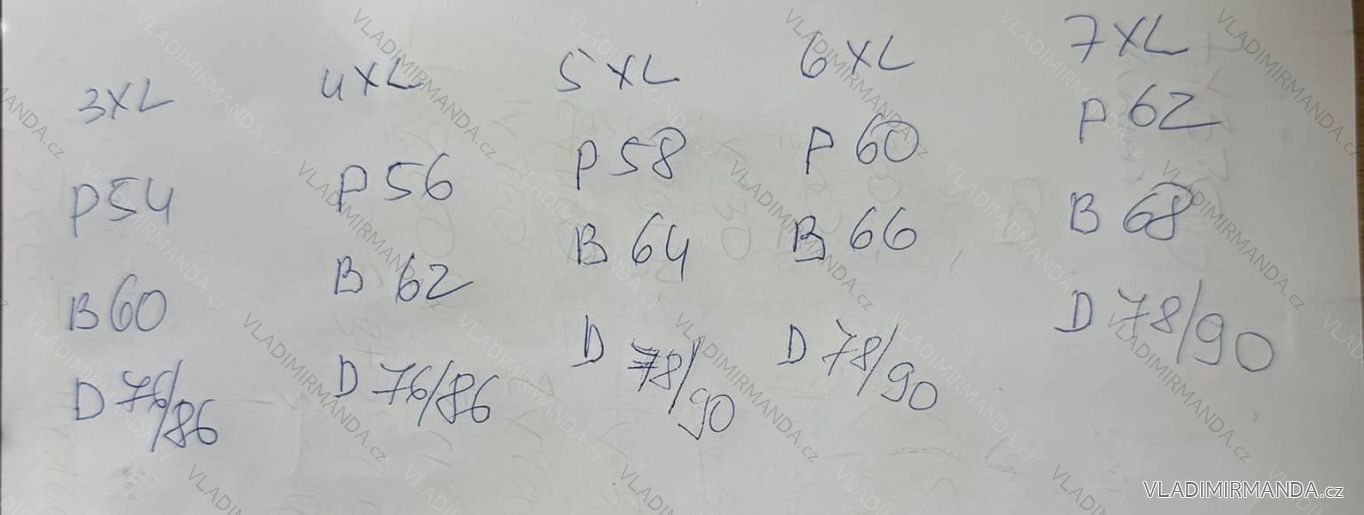 3XL
P54
B60
D 76/86
4XL
P 56
B 62
D 76/86
5XL
P 58
B 64
D 78/90
6XL
P 60
B 66
D 78/90
7XL
P 62
B 68
D 78/90
VLADIMIRMANDA.cz